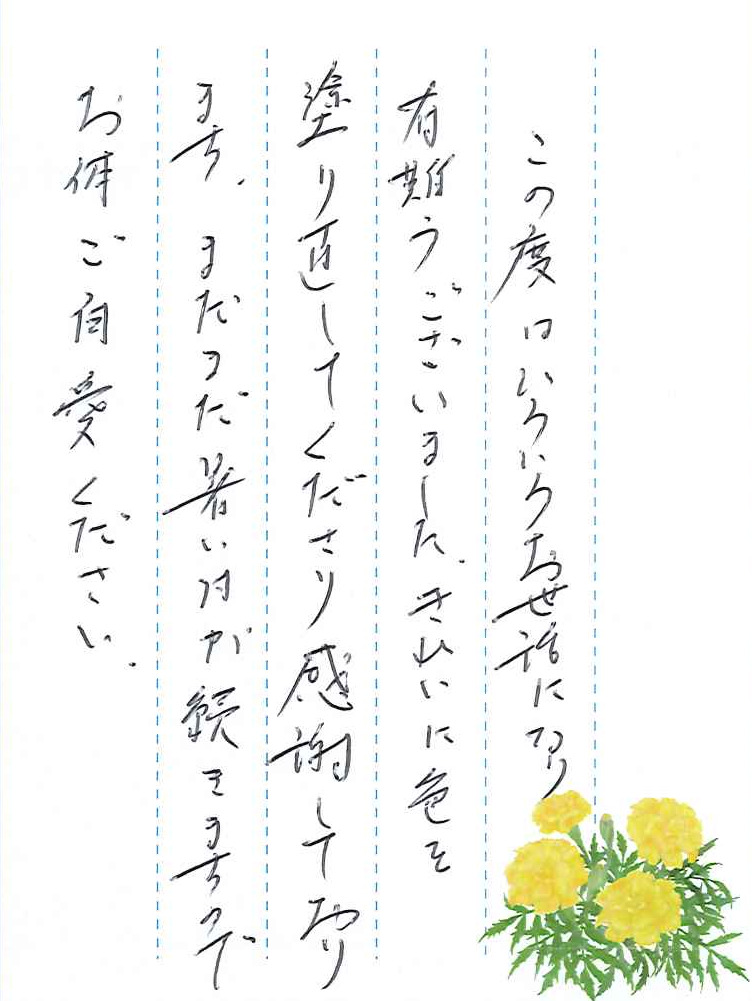 この度はいろいろお世話になり
有難うございました。きれいに色を
塗り直してくださり感謝しており
ます。まだまだ暑い日が続きますので
お体ご自愛ください。